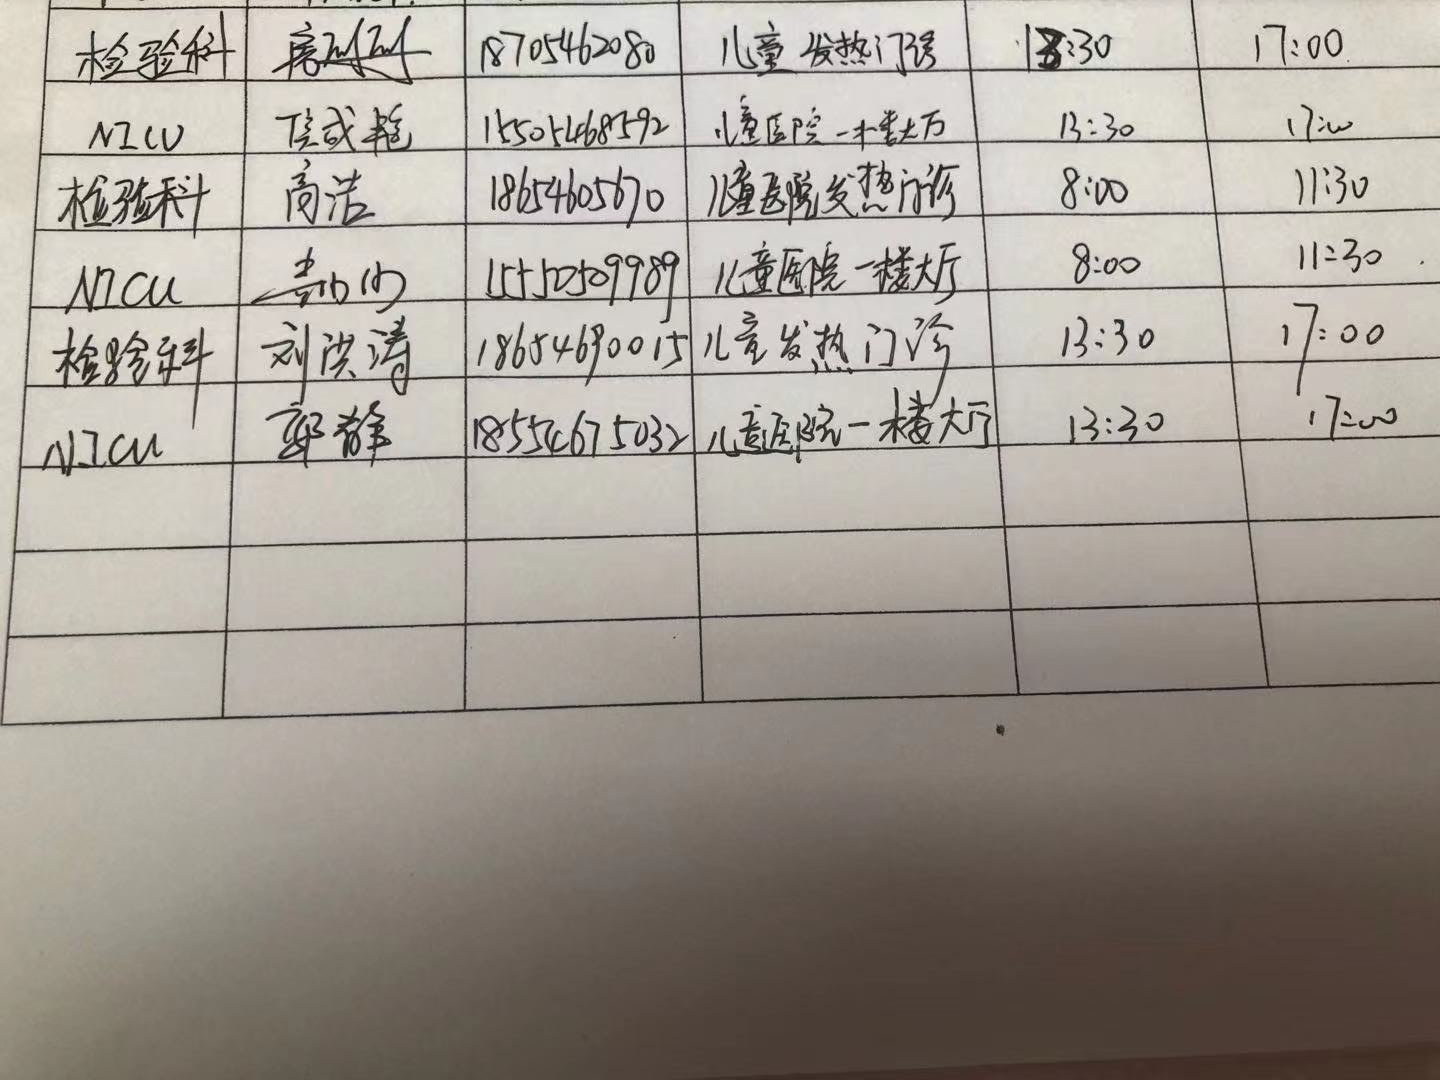 检验科 18705462080 儿童发热门诊 13:30 17:00
NICU 15505468592 儿童医院一楼大厅 13:30 17:00
检验科 高浩 18654605670 儿童医院发热门诊 8:00 11:30
NICU 15550509989 儿童医院一楼大厅 8:00 11:30
检验科 刘洪涛 18654690015 儿童发热门诊 13:30 17:00
NICU 郭静 18554675032 儿童医院一楼大厅 13:30 17:00